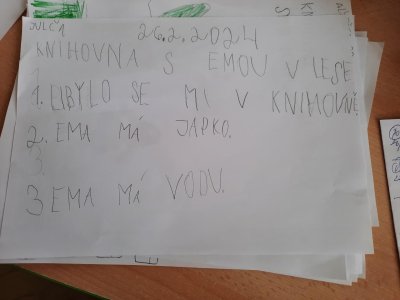 JULČA 26.2.2024
KNIHOVNA S EMOU V LESE
1. LIBYLO SE MI V KNIHOVNĚ.
2. EMA MÁ JAPKO.
3.
3 EMA MÁ VODU.